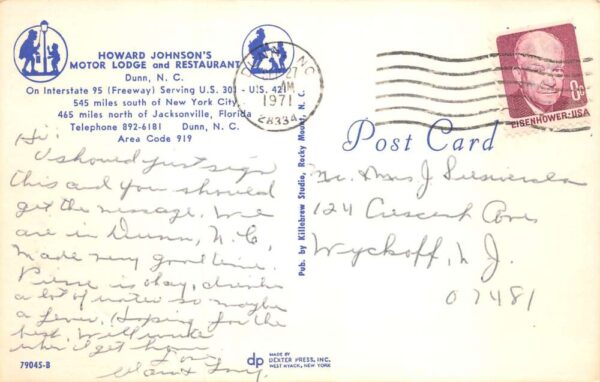 HOWARD JOHNSON'S
MOTOR LODGE and RESTAURANT
Dunn, N. C.
On Interstate 95 (Freeway) Serving U.S. 301 - U.S. 421
545 miles south of New York City
465 miles north of Jacksonville, Florida
Telephone 892-6181 Dunn, N. C.
Area Code 919
Hi!
I should just sign
this and you should
get the message. We
are in Dunn, N.C,
made very good time.
Pierre is okay, drinks
a lot of water so maybe
a fever. Hoping for the
best. Will write
when I get home
Love
79045-B
Pub. by Killebrew Studio, Rocky Mount, N. C.
dp
MADE BY
DEXTER PRESS, INC.
WEST NYACK, NEW YORK
DUNN, NC
27
AM
1971
28334
8c
EISENHOWER·USA
Post Card
Mr. Mrs J
124 Crescent
Wyckoff, N. J.
07481